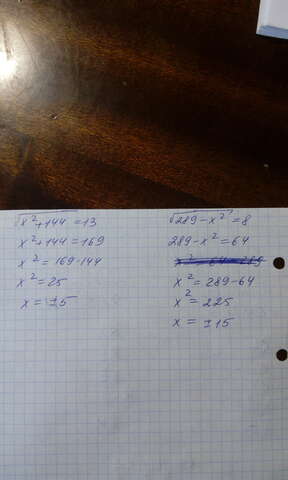 √x²+144 = 13
x²+144 = 169
x² = 169-144
x² = 25
x = ±5
√289-x² = 8
289-x² = 64
x² = 289-64
x² = 225
x = ±15